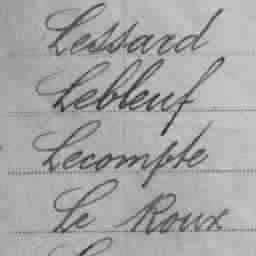 Lessard
Lebleuf
Lecompte
Le Roux